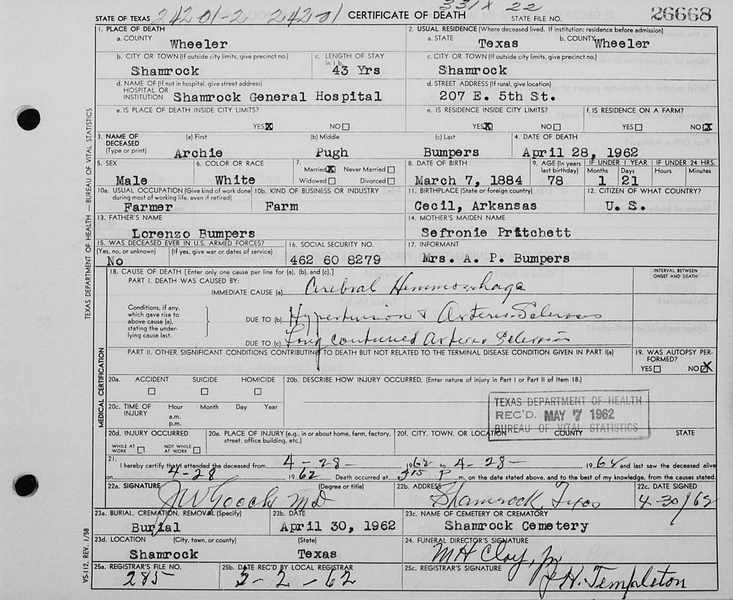 24201-2 24201 331X 22
STATE OF TEXAS CERTIFICATE OF DEATH STATE FILE NO. 26668
1. PLACE OF DEATH 2. USUAL RESIDENCE (Where deceased lived. If institution: residence before admission)
a. COUNTY Wheeler a. STATE Texas b. COUNTY Wheeler
b. CITY OR TOWN (If outside city limits, give precinct no.) c. LENGTH OF STAY c. CITY OR TOWN (If outside city limits, give precinct no.)
Shamrock 43 Yrs Shamrock
d. NAME OF (If not in hospital, give street address) d. STREET ADDRESS (If rural, give location)
HOSPITAL OR INSTITUTION Shamrock General Hospital 207 E. 5th St.
e. IS PLACE OF DEATH INSIDE CITY LIMITS? e. IS RESIDENCE INSIDE CITY LIMITS? f. IS RESIDENCE ON A FARM?
YES X NO YES X NO YES NO X
3. NAME OF DECEASED (Type or print) (a) First (b) Middle (c) Last 4. DATE OF DEATH
Archie Pugh Bumpers April 28, 1962
5. SEX 6. COLOR OR RACE 7. Married X Never Married Widowed Divorced 8. DATE OF BIRTH 9. AGE (In years last birthday) IF UNDER 1 YEAR IF UNDER 24 HRS.
Months Days Hours Minutes
Male White March 7, 1884 78 1 21
10a. USUAL OCCUPATION (Give kind of work done during most of working life, even if retired) 10b. KIND OF BUSINESS OR INDUSTRY 11. BIRTHPLACE (State or foreign country) 12. CITIZEN OF WHAT COUNTRY?
Farmer Farm Cecil, Arkansas U. S.
13. FATHER'S NAME 14. MOTHER'S MAIDEN NAME
Lorenzo Bumpers Sefronie Pritchett
15. WAS DECEASED EVER IN U.S. ARMED FORCES? 16. SOCIAL SECURITY NO. 17. INFORMANT
(Yes, no, or unknown) (If yes, give war or dates of service)
No 462 60 8279 Mrs. A. P. Bumpers
18. CAUSE OF DEATH (Enter only one cause per line for (a), (b), and (c).) INTERVAL BETWEEN ONSET AND DEATH
PART I. DEATH WAS CAUSED BY:
IMMEDIATE CAUSE (a) Cerebral Hemmorrhage
Conditions, if any, which gave rise to above cause (a), stating the underlying cause last.
DUE TO (b) Hypertension & Arterio Sclerosis
DUE TO (c) Long continued Arterio Sclerosis
PART II. OTHER SIGNIFICANT CONDITIONS CONTRIBUTING TO DEATH BUT NOT RELATED TO THE TERMINAL DISEASE CONDITION GIVEN IN PART I(a) 19. WAS AUTOPSY PERFORMED?
YES NO X
20a. ACCIDENT SUICIDE HOMICIDE 20b. DESCRIBE HOW INJURY OCCURRED. (Enter nature of injury in Part I or Part II of item 18.)
20c. TIME OF INJURY Hour Month Day Year a.m. p.m.
TEXAS DEPARTMENT OF HEALTH
REC'D MAY 7 1962
BUREAU OF VITAL STATISTICS
20d. INJURY OCCURRED WHILE AT WORK NOT WHILE AT WORK 20e. PLACE OF INJURY (e.g., in or about home, farm, factory, street, office building, etc.) 20f. CITY, TOWN, OR LOCATION COUNTY STATE
21. I hereby certify that I attended the deceased from 4-28- 1962 4-28- 1962 and last saw the deceased alive
on 4-28 1962 Death occurred at m. on the date stated above, and to the best of my knowledge, from the causes stated.
22a. SIGNATURE (Degree or title) 22b. ADDRESS 22c. DATE SIGNED
J W Gooch MD Shamrock Texas 4-30/62
23a. BURIAL, CREMATION, REMOVAL (Specify) 23b. DATE 23c. NAME OF CEMETERY OR CREMATORY
Burial April 30, 1962 Shamrock Cemetery
23d. LOCATION (City, town, or county) (State) 24. FUNERAL DIRECTOR'S SIGNATURE
Shamrock Texas M H Clay, Jr
25a. REGISTRAR'S FILE NO. 25b. DATE REC'D BY LOCAL REGISTRAR 25c. REGISTRAR'S SIGNATURE
285 Templeton
TEXAS DEPARTMENT OF HEALTH — BUREAU OF VITAL STATISTICS
MEDICAL CERTIFICATION
VS-112, REV. 1/58